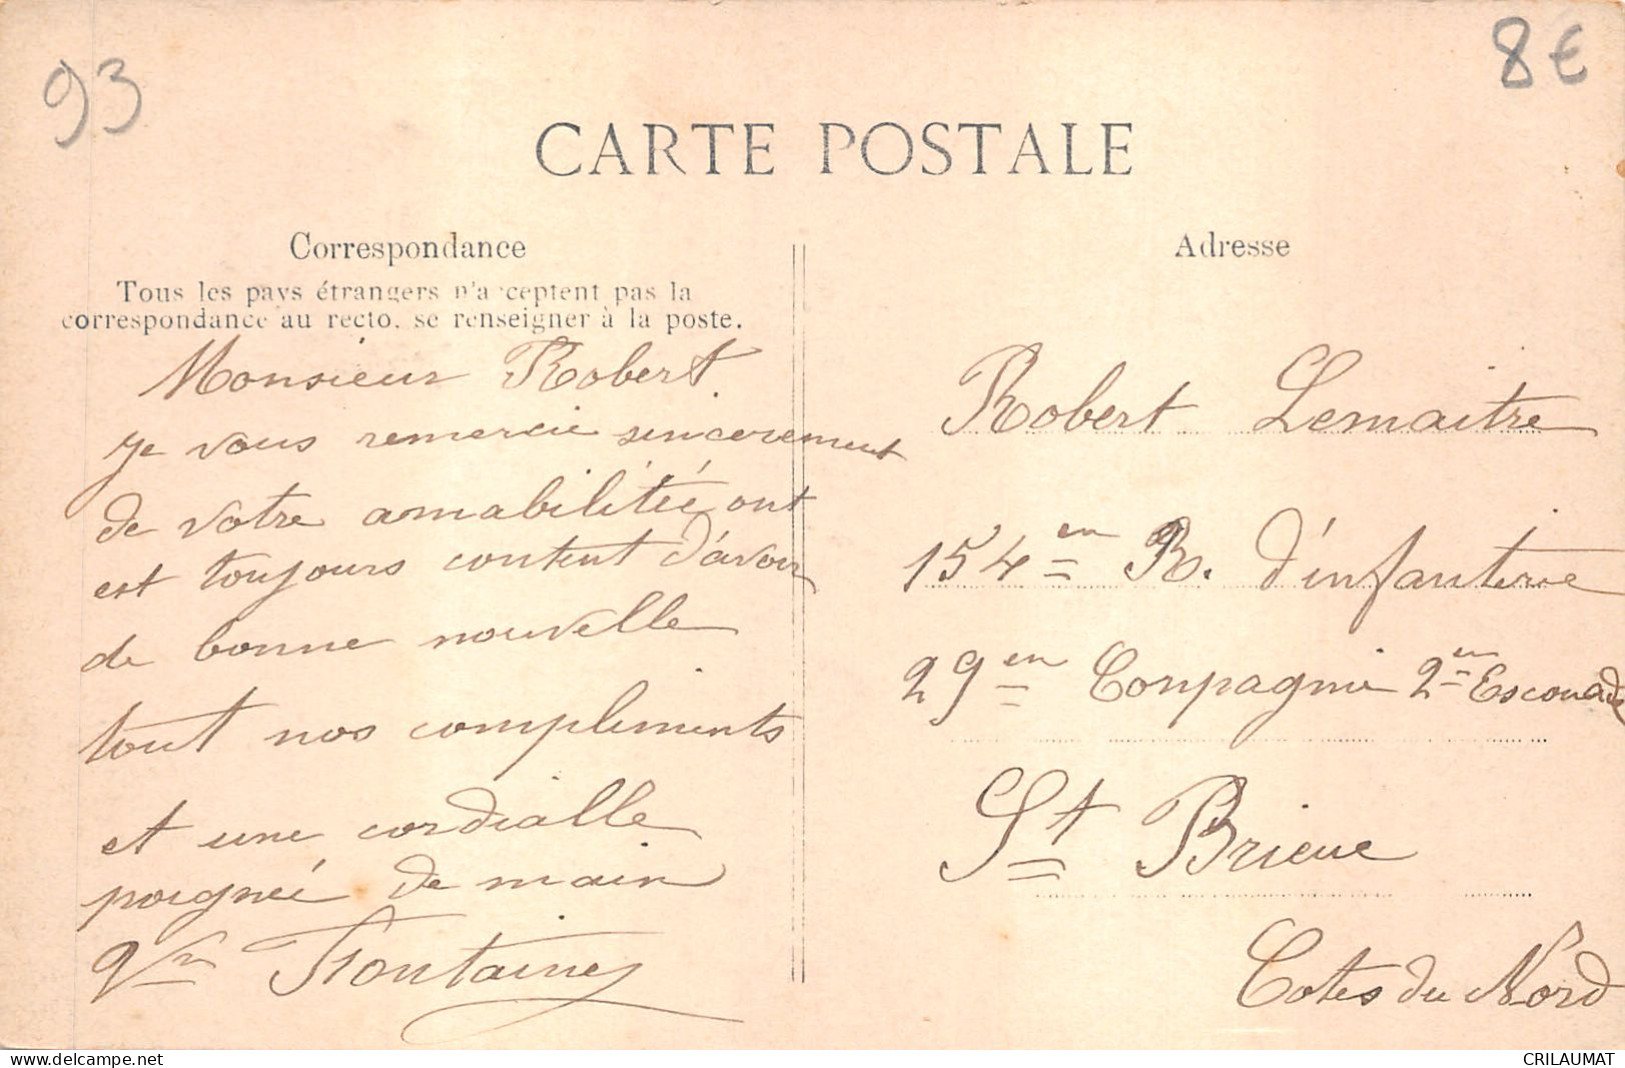 93
8€
CARTE POSTALE
Correspondance
Tous les pays étrangers n'acceptent pas la
correspondance au recto, se renseigner à la poste.
Monsieur Robert
Je vous remercie sincerement
de votre amabilitée ont
est toujours content d'avoir
de bonne nouvelle
tout nos compliments
et une cordialle
poignée de main
Fontaine
Adresse
Robert Lemaitre
154en R. d'infanterie
29en Conpagnie 2en Escouade
St Brieue
Cotes du Nord
CRILAUMAT